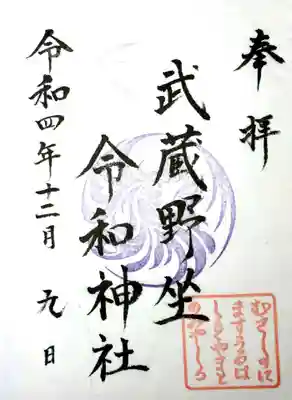 奉拝
武蔵野坐
令和神社
令和四年十二月九日
むさしのに
ますうるは
しきやまと
のみやしろ